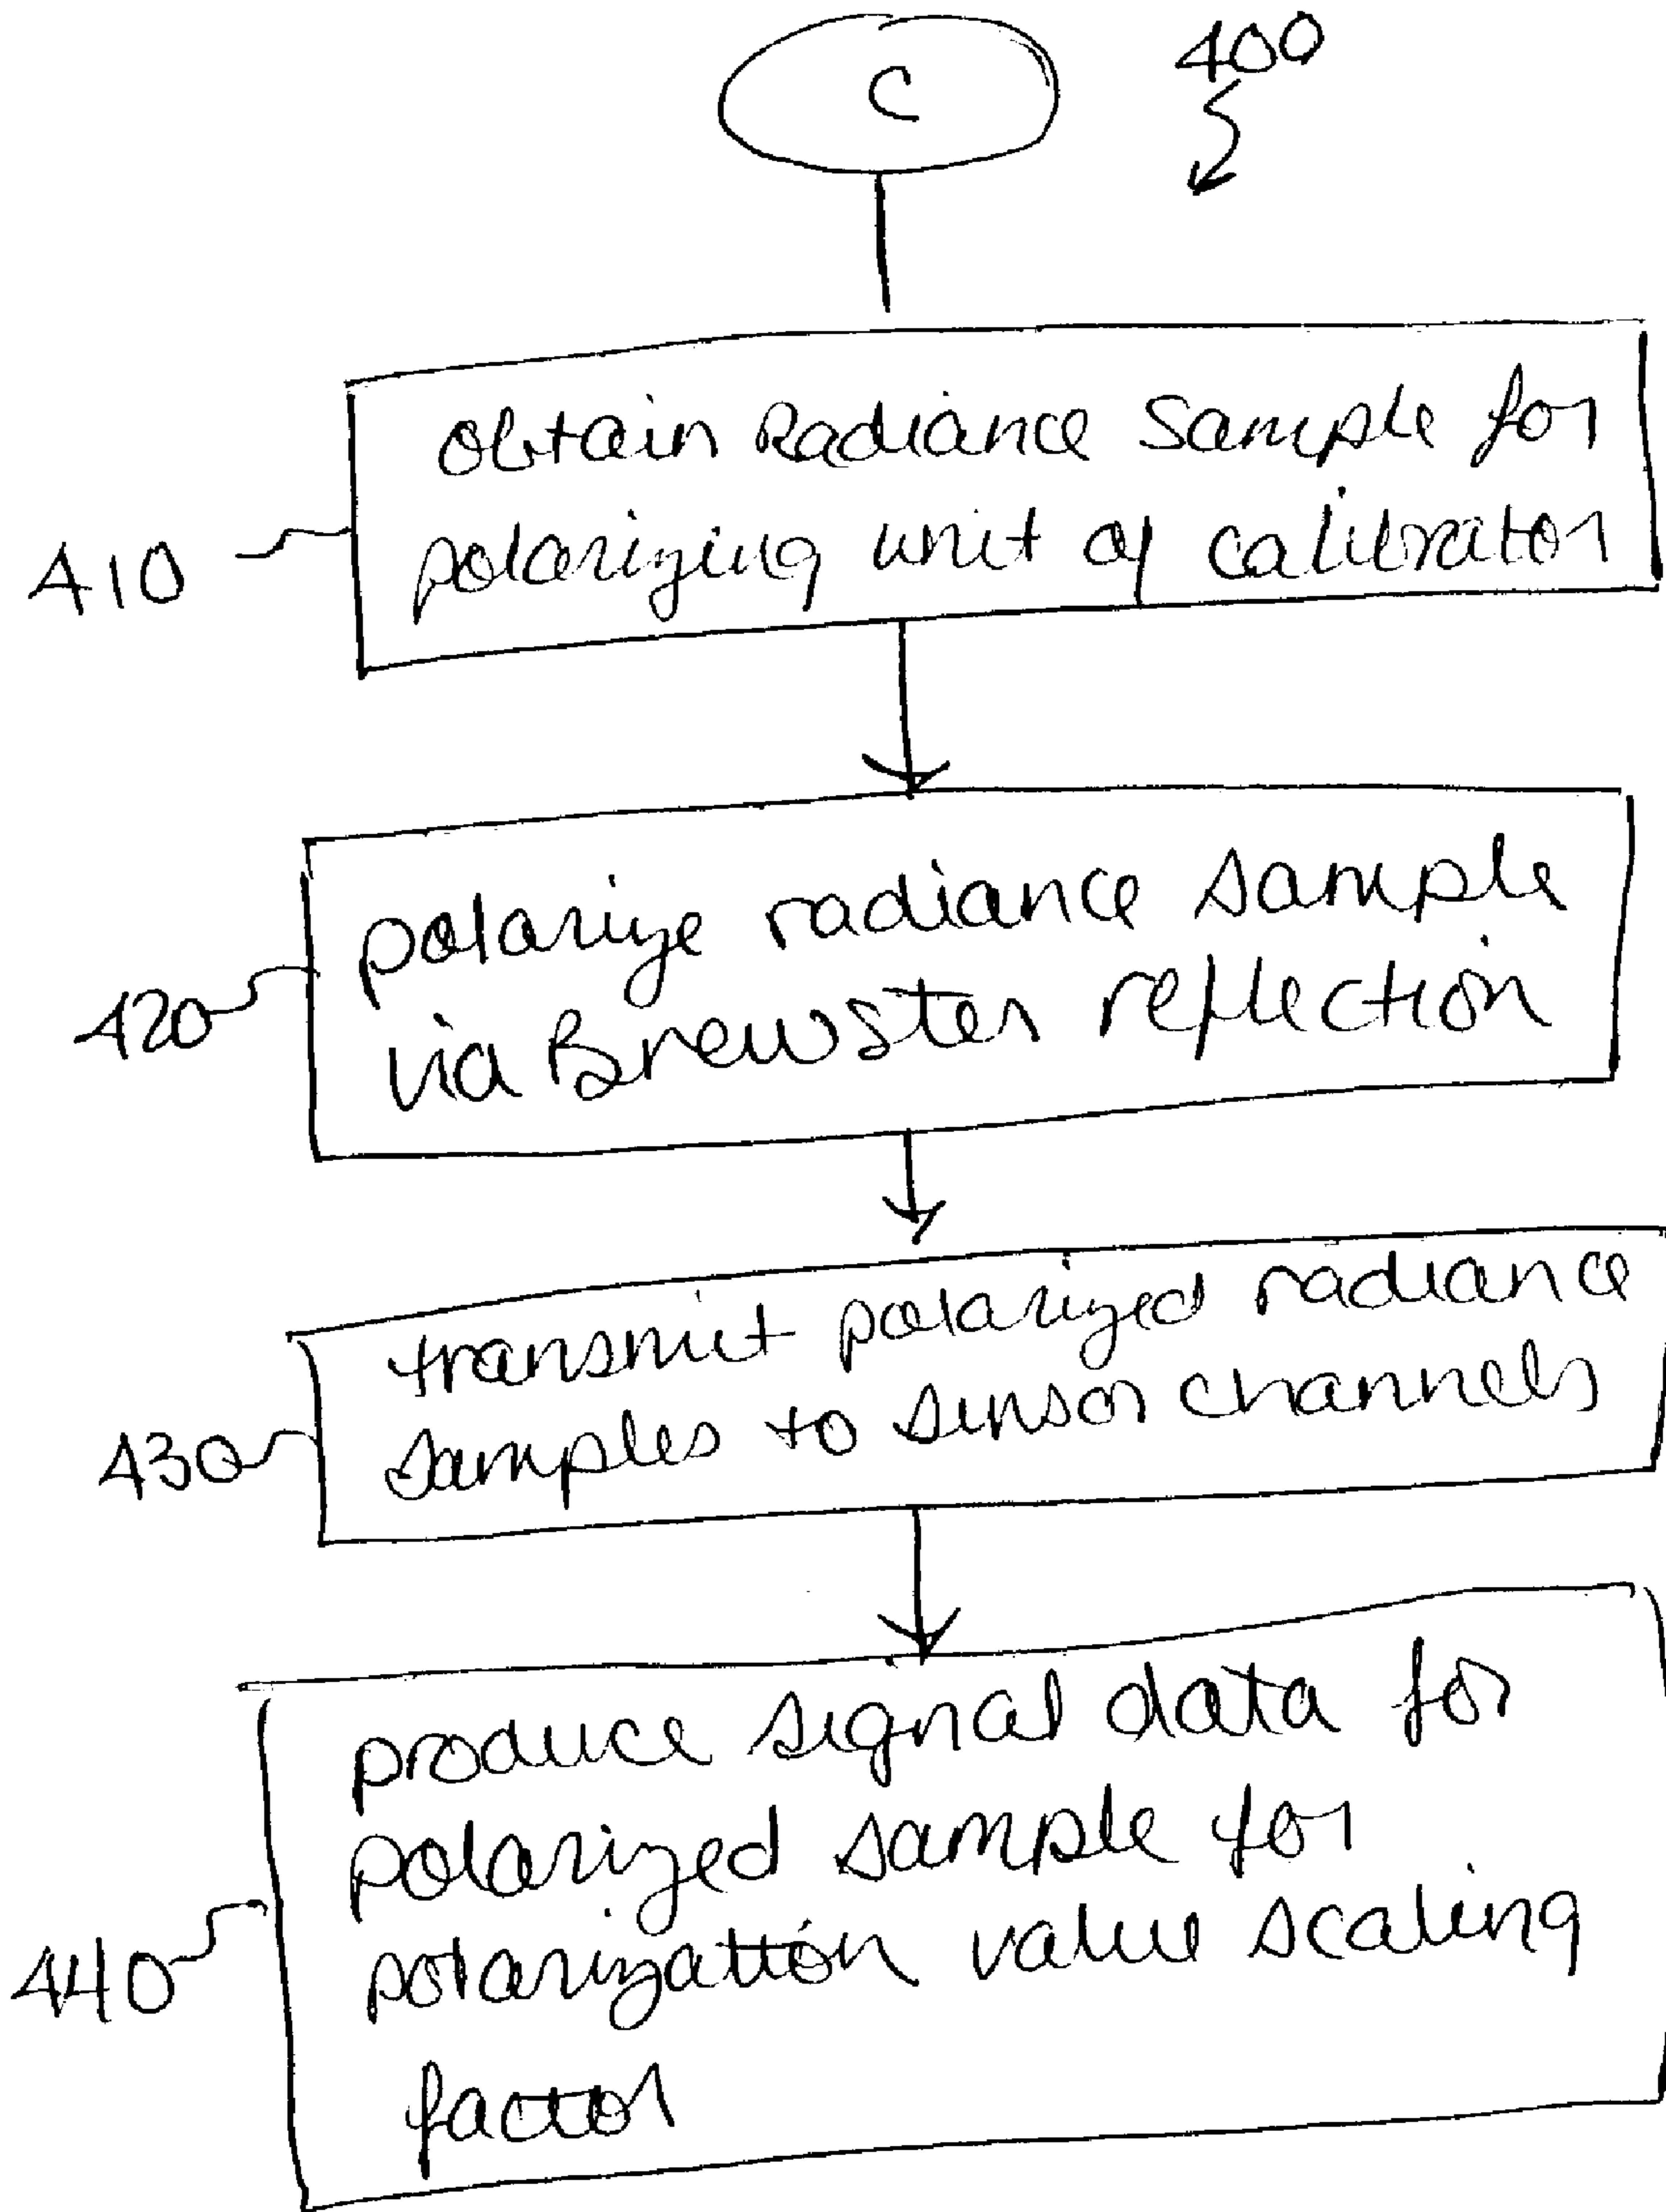 C
400
obtain Radiance Sample for
polarizing unit of calibrator
410
polarize radiance sample
via Brewster reflection
420
transmit polarized radiance
samples to sensor channels
430
produce signal data for
polarized sample for
polarization value scaling
factor
440